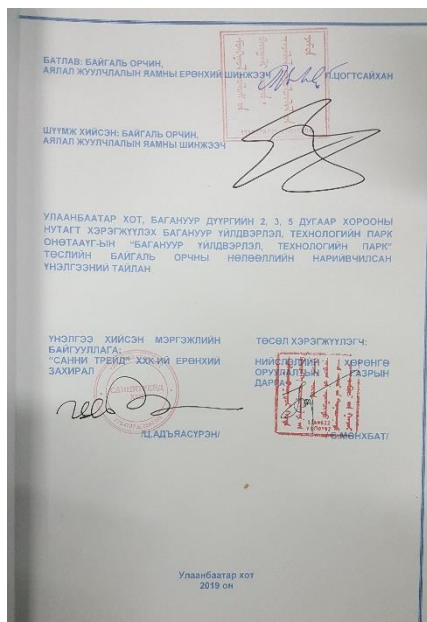 БАТЛАВ: БАЙГАЛЬ ОРЧИН,
АЯЛАЛ ЖУУЛЧЛАЛЫН ЯАМНЫ ЕРӨНХИЙ ШИНЖЭЭЧ П.ЦОГТСАЙХАН
ШҮҮМЖ ХИЙСЭН: БАЙГАЛЬ ОРЧИН,
АЯЛАЛ ЖУУЛЧЛАЛЫН ЯАМНЫ ШИНЖЭЭЧ
УЛААНБААТАР ХОТ, БАГАНУУР ДҮҮРГИЙН 2, 3, 5 ДУГААР ХОРООНЫ
НУТАГТ ХЭРЭГЖҮҮЛЭХ БАГАНУУР ҮЙЛДВЭРЛЭЛ, ТЕХНОЛОГИЙН ПАРК
ОНӨТААҮГ-ЫН "БАГАНУУР ҮЙЛДВЭРЛЭЛ, ТЕХНОЛОГИЙН ПАРК"
ТӨСЛИЙН БАЙГАЛЬ ОРЧНЫ НӨЛӨӨЛЛИЙН НАРИЙВЧИЛСАН
ҮНЭЛГЭЭНИЙ ТАЙЛАН
ҮНЭЛГЭЭ ХИЙСЭН МЭРГЭЖЛИЙН
БАЙГУУЛЛАГА:
"САННИ ТРЕЙД" ХХК-ИЙ ЕРӨНХИЙ
ЗАХИРАЛ
/Ц.АДЪЯАСҮРЭН/
ТӨСӨЛ ХЭРЭГЖҮҮЛЭГЧ:
НИЙСЛЭЛИЙН ХӨРӨНГӨ
ОРУУЛАЛТЫН ГАЗРЫН
ДАРГА
/Б.МӨНХБАТ/
Улаанбаатар хот
2019 он